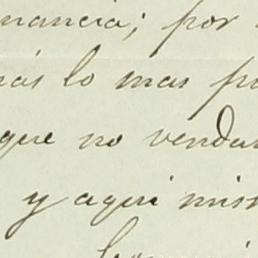 nancia; por
más lo mas p
que no vendar
y aqui mis